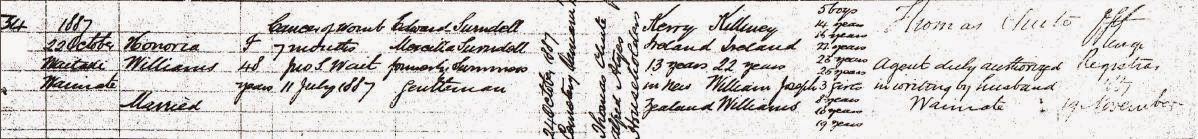 34
1887
22 October
Waitaki
Waimate
Honoria
Williams
Married
F
48
years
Cancer of Womb
7 months
Jno S. Wait
11 July 1887
Edward Surndell
Mercelia Surndell
formerly Summers
Gentleman
24 October 1887
Thomas Chute
Kerry
Ireland
13 years
in New
Zealand
Killiney
Ireland
22 years
William Joseph
Williams
5 boys
14 years
16 years
22 years
28 years
26 years
3 Girls
8 years
16 years
19 years
Thomas Chute
Agent duly authorized
in writing by husband
Waimate
Registrar
19 November